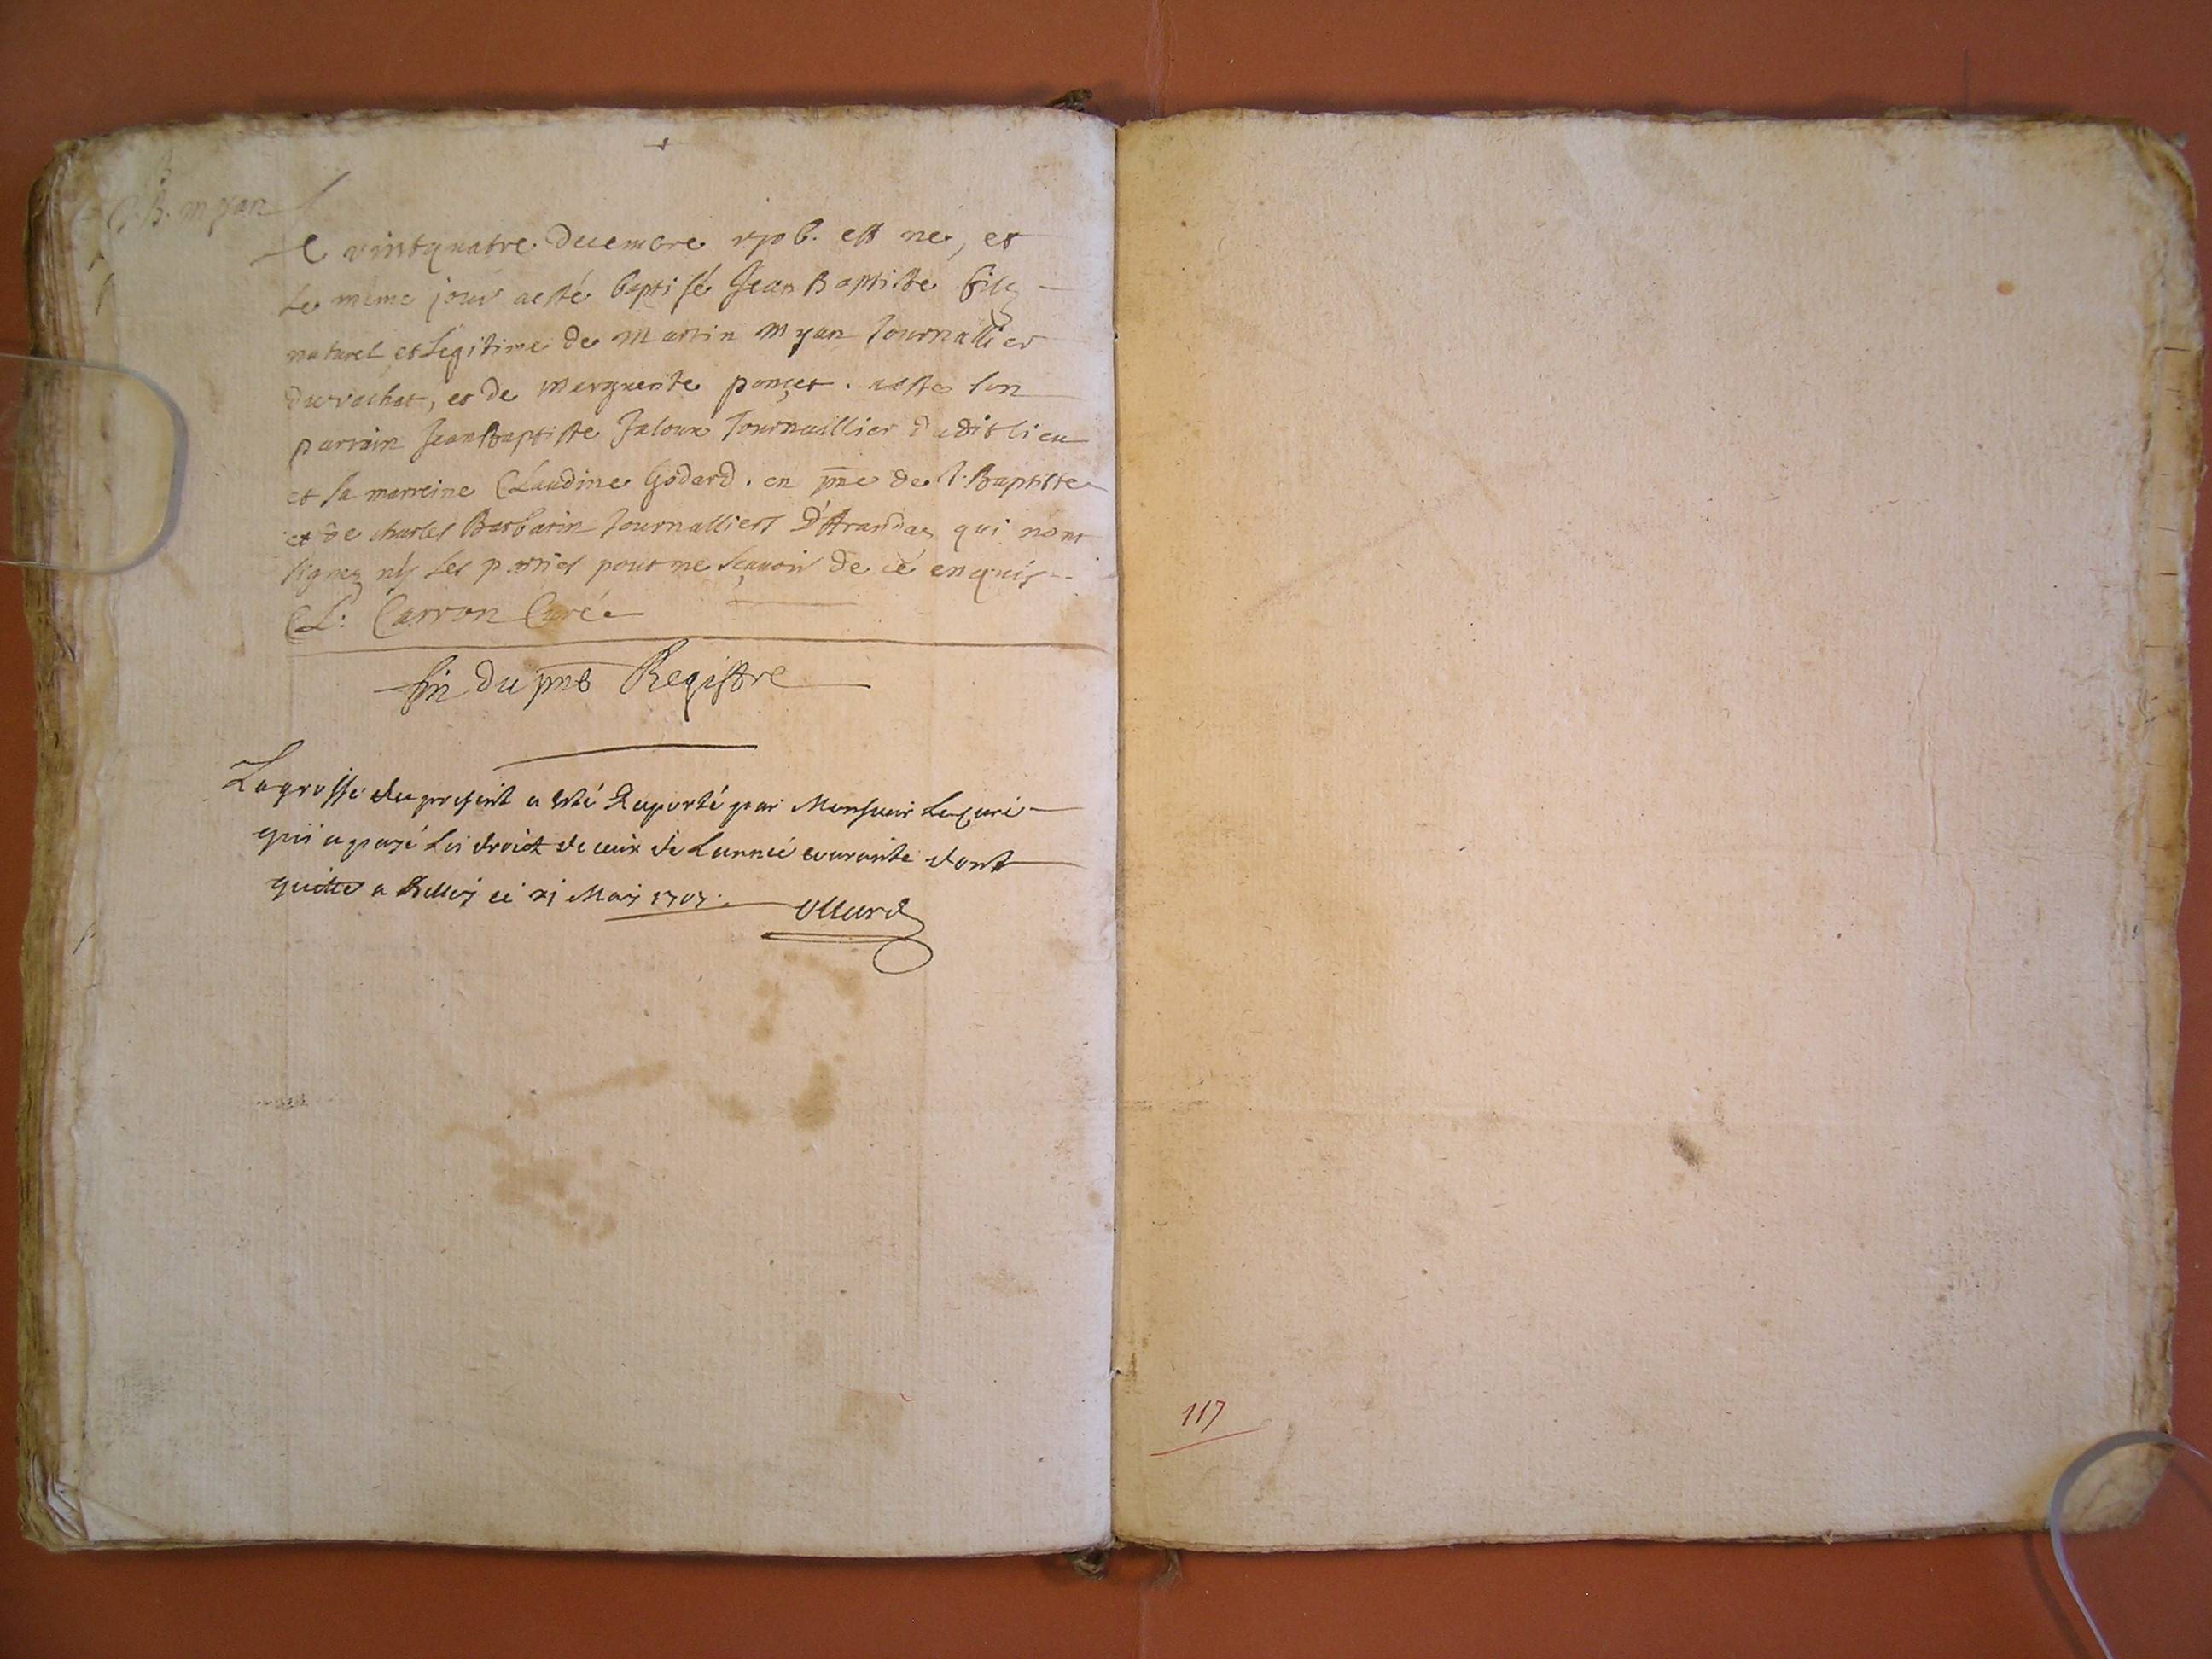 J.B. myan
Le vintquatre Decembre 1706. est né, et
Le même jour aesté baptisé Jean Baptiste filz
naturel et Legitime de Martin Myan Journallier
de, et de Marguerite ponçet. aesté son
parrain JeanBaptiste Jaloux Journaillier dudit lieu
et sa marreine Claudine Godard. en pnce de J. Baptiste
et de charles Barbarin Journalliers D'Arandas qui nont
signez ny Les parties pour ne sçavoir de ce enquis
CL: Carron Curé
fin du pnt Registre
La grosse du present a esté Raporté par Monsieur Le Curé
qui a payé Les droict de ceux de Lannée courante dont
quitte a Belley ce 21 May 1707.
117